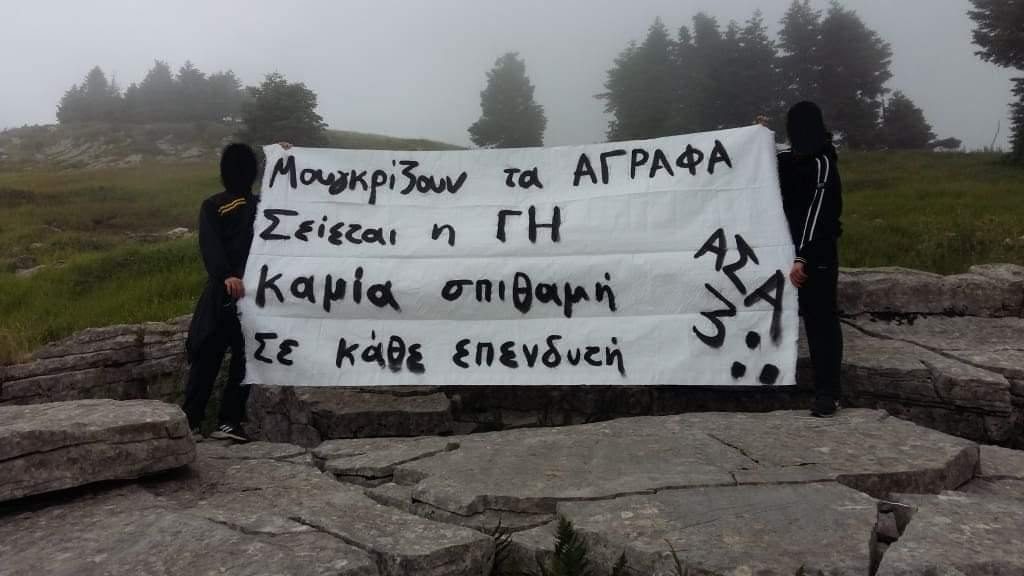 Μουγκρίζουν τα ΑΓΡΑΦΑ
Σείεται η ΓΗ
καμία σπιθαμή
Σε κάθε επενδυτή